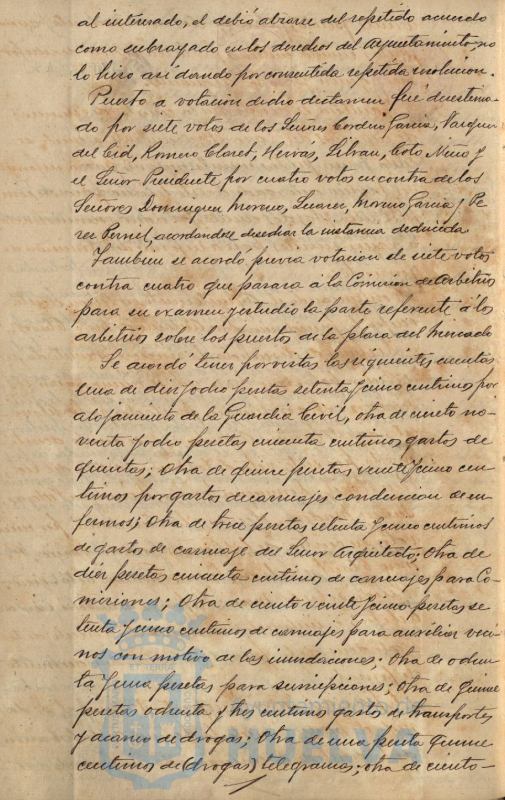 al interesado, el debió alzarse del repetido acuerdo
como subrayado en los derechos del Ayuntamiento, no
lo hizo así dando por consentida repetida resolucion.
Puesto a votacion dicho dictamen fué desestima-
do por siete votos de los Señores Cordero Garcia, Vazquez
del Cid, Romero Claret, Hervás, Coto Niño y
el Señor Presidente por cuatro votos en contra de los
Señores Dominguez Moreno, Suarez, Moreno Garcia y Pe-
rez acordandose desechar la instancia deducida
Tambien se acordó previa votacion de siete votos
contra cuatro que pasara á la Comision de Arbitrios
para su examen y estudio la parte referente á los
arbitrios sobre los puestos de la plaza del Mercado
Se acordó tener por vistas las siguientes cuentas
una de diez y ocho pesetas setenta y cinco centimos por
alojamiento de la Guardia Civil, otra de ciento no-
venta y ocho pesetas cincuenta centimos gastos de
quintas; Otra de quince pesetas veinticinco cen-
timos por gastos de carruajes conduccion de en-
fermos; Otra de trece pesetas setenta y cinco centimos
de gastos de carruaje del Señor Arquitecto; Otra de
diez pesetas cincuenta centimos de carruajes para Co-
misiones; Otra de ciento veinte y cinco pesetas se-
tenta y cinco centimos de carruajes para auxiliar veci-
nos con motivo de las inundaciones; Otra de ochen-
ta y una pesetas para suscripciones; Otra de quince
pesetas ochenta y tres centimos gastos de transportes
y acarreo de drogas; Otra de una peseta quince
centimos de (drogas) telegramas; otra de ciento-